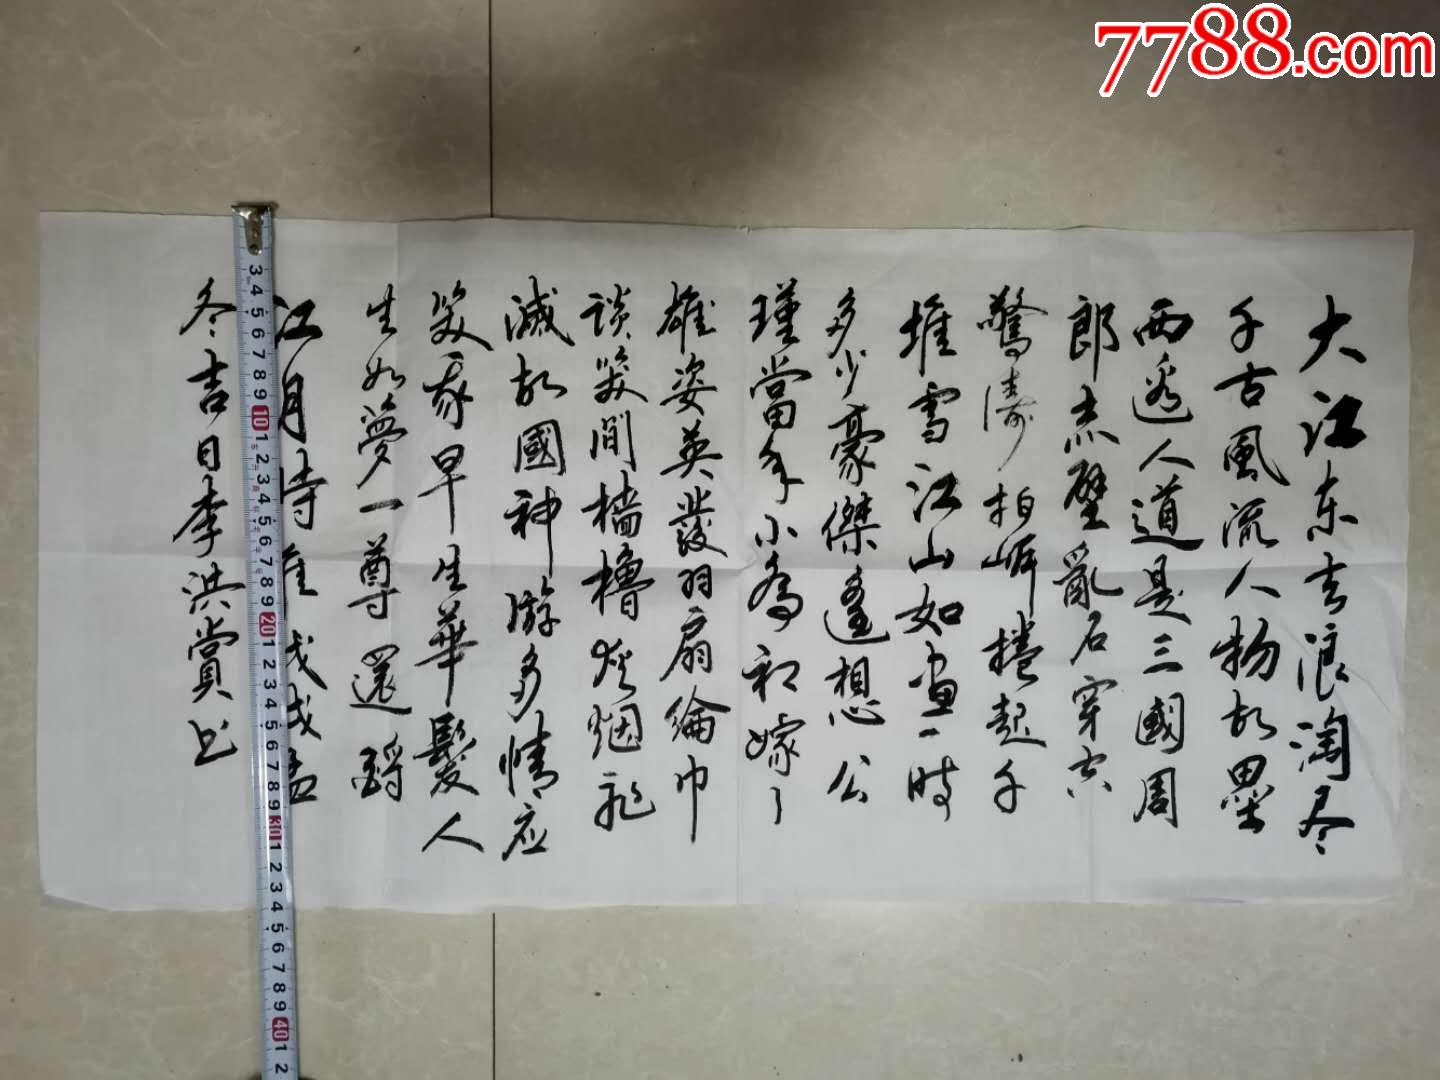 7788.com
大江东去浪淘尽
千古風流人物故壘
西邊人道是三國周
郎赤壁亂石穿空
驚濤拍岸捲起千
堆雪江山如画一時
多少豪傑遙想公
瑾當年小喬初嫁了
雄姿英發羽扇綸巾
談笑間檣櫓灰烟飛
滅故國神游多情应
笑我早生華髮人
生如夢一尊還酹
江月時维戊戌孟
冬吉日李洪賞书
3 4 5 6 7 8 9 10 1 2 3 4 5 6 7 8 9 20 1 2 3 4 5 6 7 8 9 30 1 2 3 4 5 6 7 8 9 40 1 2